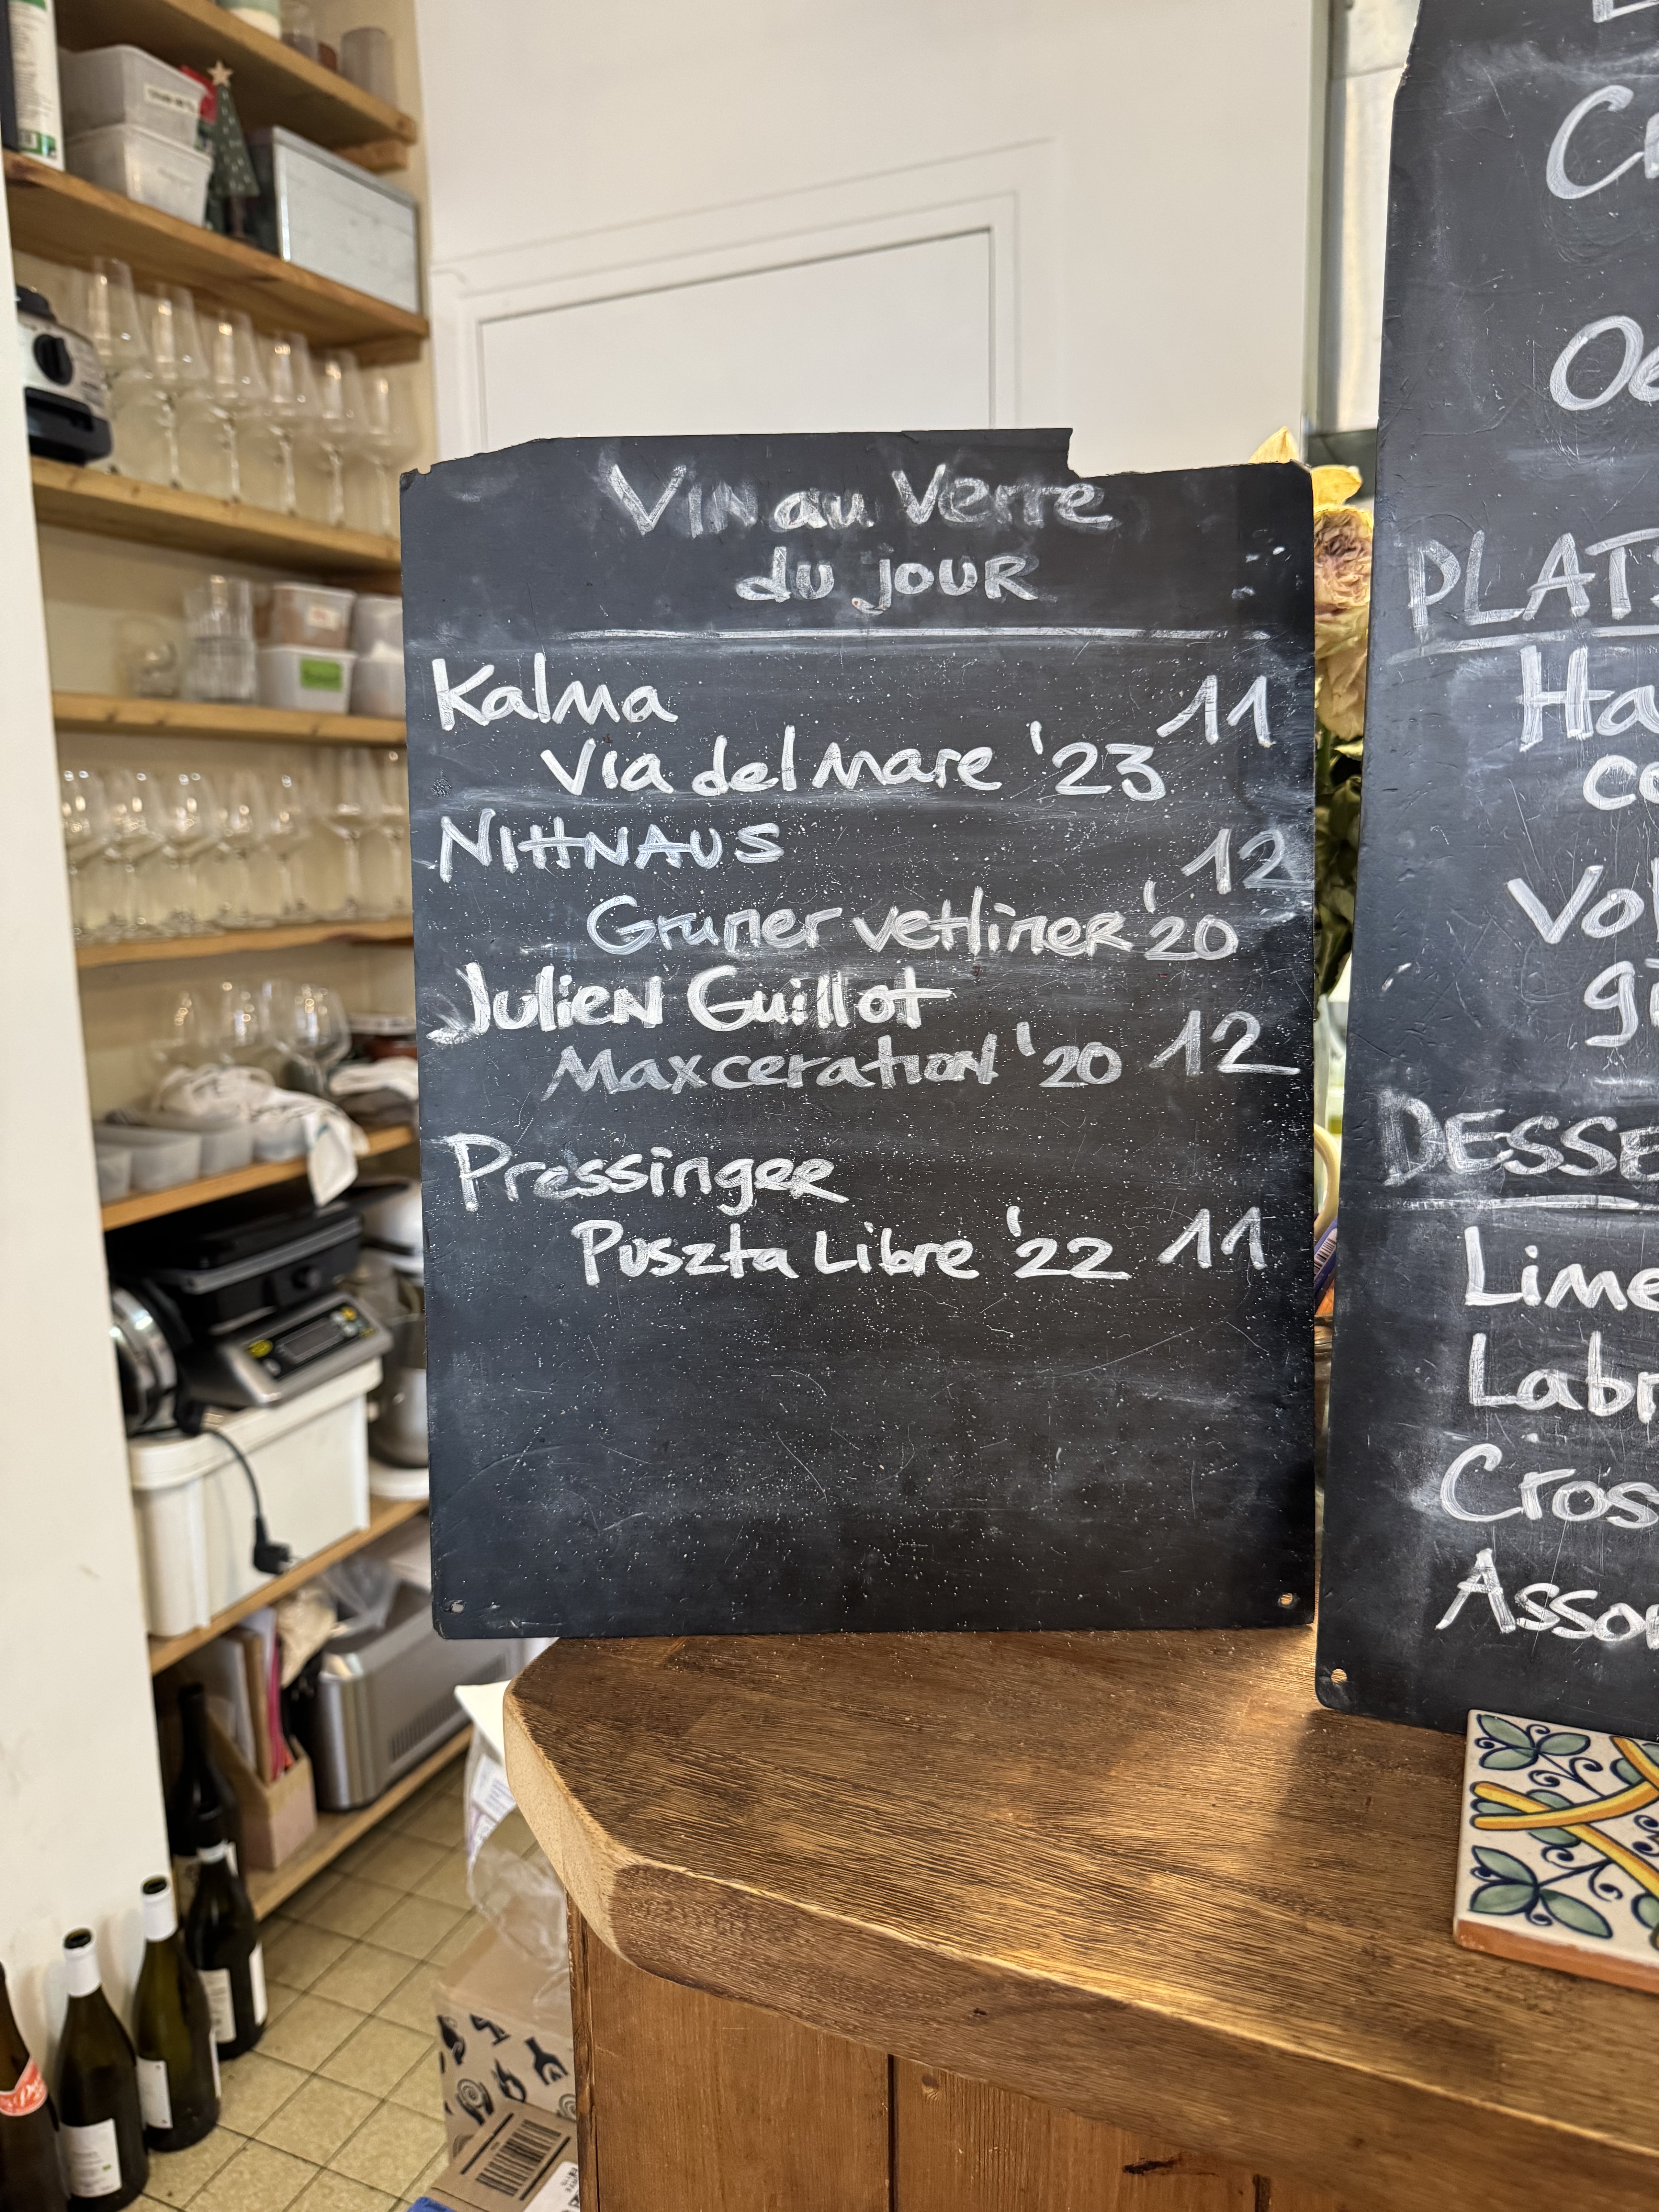 Vin au Verre
du jour
Kalma 11
Via del Mare '23
NittNAUS 12
Gruner vetliner '20
Julien Guillot
Maxceration '20 12
Pressinger
Puszta Libre '22 11
PLATS
Ha
co
Vol
gi
DESSE
Lime
Labr
Cros
Assor